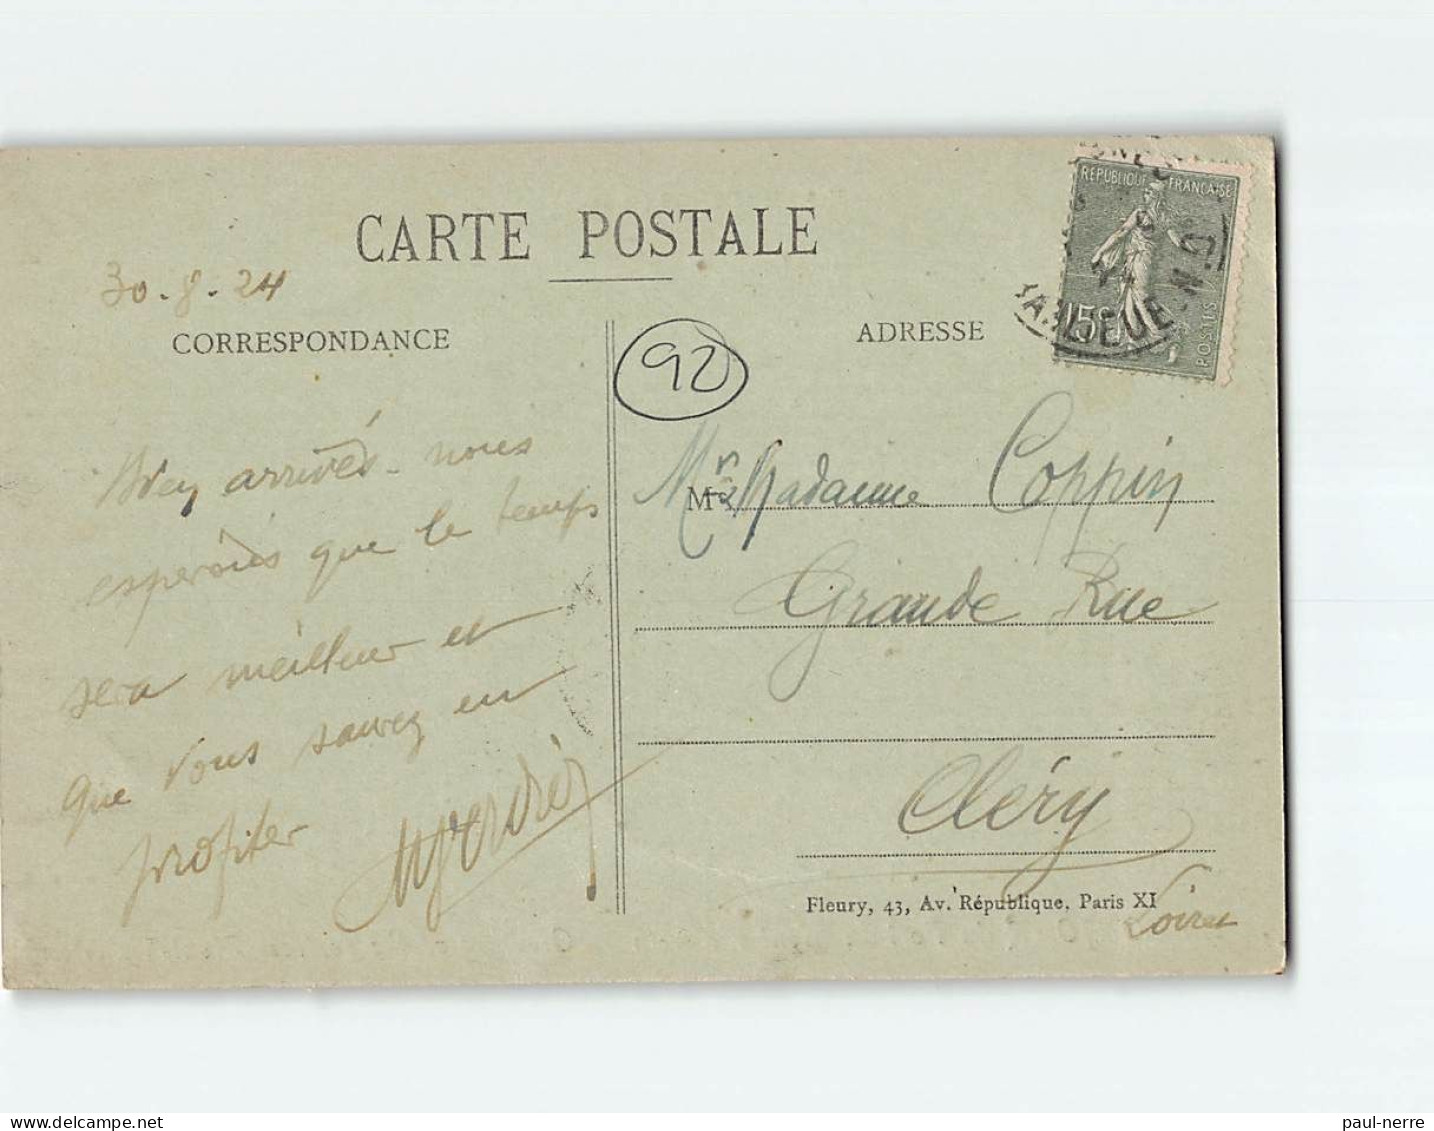 CARTE POSTALE
30.8.24
CORRESPONDANCE
ADRESSE
92
RÉPUBLIQUE FRANÇAISE
15c
POSTES
BANLIEUE N.D
Bien arrivés - nous
espérons que le temps
sera meilleur et
que vous saurez en
profiter
M Madame Coppin
Grande Rue
Cléry
Loiret
Fleury, 43, Av. République, Paris XI
paul-nerre